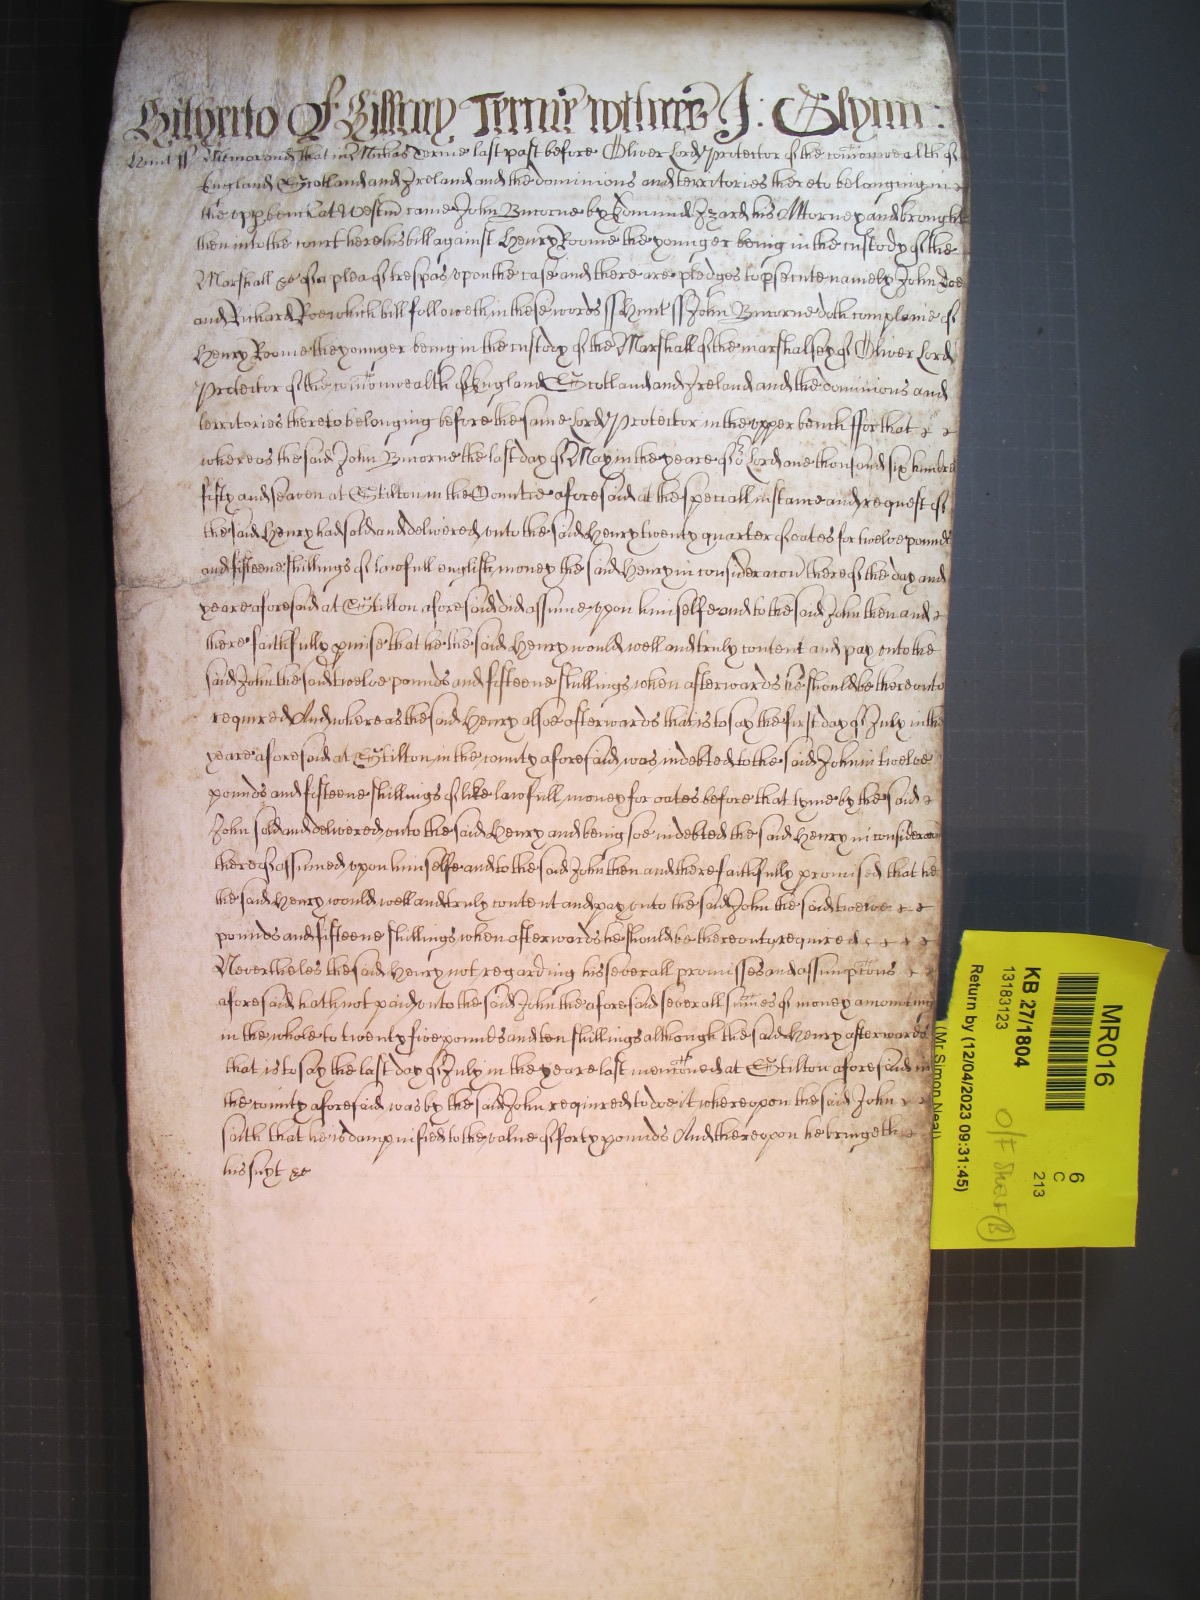 Hitherto Of Hillary Terme witnes J: Glynn:
Hunt ss Memorand that in Michas Terme last past before Oliver Lord Protector of the comonwealth of
England Scotland and Ireland and the dominions and territories thereto belonging in
the upp bench at Westm came John Bworne by Edmund Izard his Attorney and brought
then into the court here his bill against Henry Roome the younger being in the custody of the
Marshall &c of a plea of trespas upon the case and there are pledges to psecute namely John Doe
and Richard Roe which bill followeth in these words ss Hunt ss John Bworne doth complaine of
Henry Roome the younger being in the custody of the Marshall of the marshalsey of Oliver Lord
Protector of the comonwealth of England Scotland and Ireland and the dominions and
territories thereto belonging before the same Lord Protector in the upper bench ffor that
whereas the said John Bworne the last day of May in the yeare of or Lord one thousand six hundred
fifty and seaven at Stilton in the Countie aforesaid at the speciall instance and request of
the said Henry had sold and delivered unto the said Henry twenty quarter of oates for twelve pounds
and fifteene shillings of lawfull english money the said Henry in consideracon thereof the day and
yeare aforesaid at Stilton aforesaid did assume upon himselfe and to the said John then and
there faithfully pmise that he the said Henry would well and truly content and pay unto the
said John the said twelve pounds and fifteene shillings when afterwards he should be thereunto
required And whereas the said Henry alsoe afterwards that is to say the first day of July in the
yeare aforesaid at Stilton in the county aforesaid was indebted to the said John in twelve
pounds and fifteene shillings of like lawfull money for oates before that tyme by the said
John sold and delivered unto the said Henry and being soe indebted the said Henry in consideracon
thereof assumed upon himselfe and to the said John then and there faithfully promised that he
the said Henry would well and truly content and pay unto the said John the said twelve
pounds and fifteene shillings when afterwards he should be thereunto required
Neverthelesse the said Henry not regarding his severall promisses and assumptions
aforesaid hath not paid unto the said John the aforesaid severall sumes of money amounting
in the whole to twenty five pounds and ten shillings although the said Henry afterwards
that is to say the last day of July in the yeare last mentioned at Stilton aforesaid in
the county aforesaid was by the said John required to doe it whereupon the said John
saith that he is dampnified to the value of forty pounds And thereupon he bringeth
his suyt &c
MR016
6
C
213
KB 27/1804
13183123
O/F Shelf (B)
Return by (12/04/2023 09:31:45)
(Mr Simon Neal)